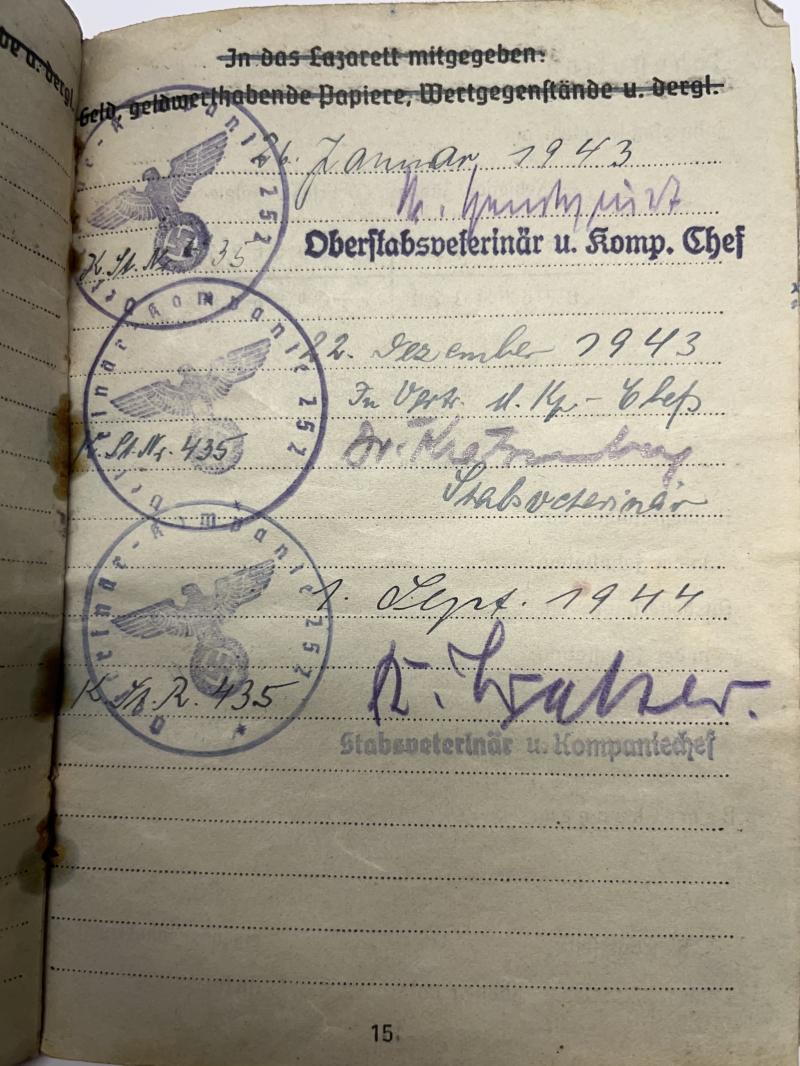 be u. dergl.
In das Lazarett mitgegeben:
Geld, geldwerthabende Papiere, Wertgegenstände u. dergl.
Veterinär-Kompanie 252
26. Januar 1943
K. St. Nr. 435
Oberstabsveterinär u. Komp. Chef
Veterinär-Kompanie 252
22. Dezember 1943
In Vertr. d. Kp-Chefs
K. St. Nr. 435
Dr.
Stabsveterinär
Veterinär-Kompanie 252
1. Sept. 1944
K. St. R. 435
Stabsveterinär u. Kompaniechef
15